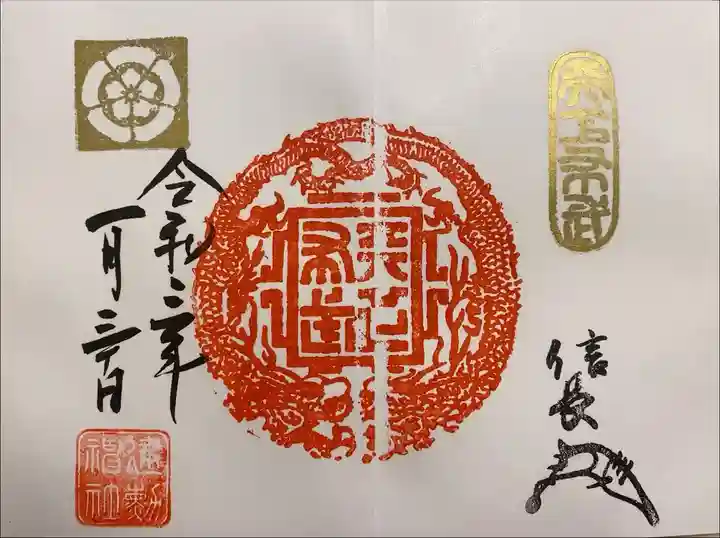 天下布武
信長
天下布武
令和二年
一月三十日
建勲神社